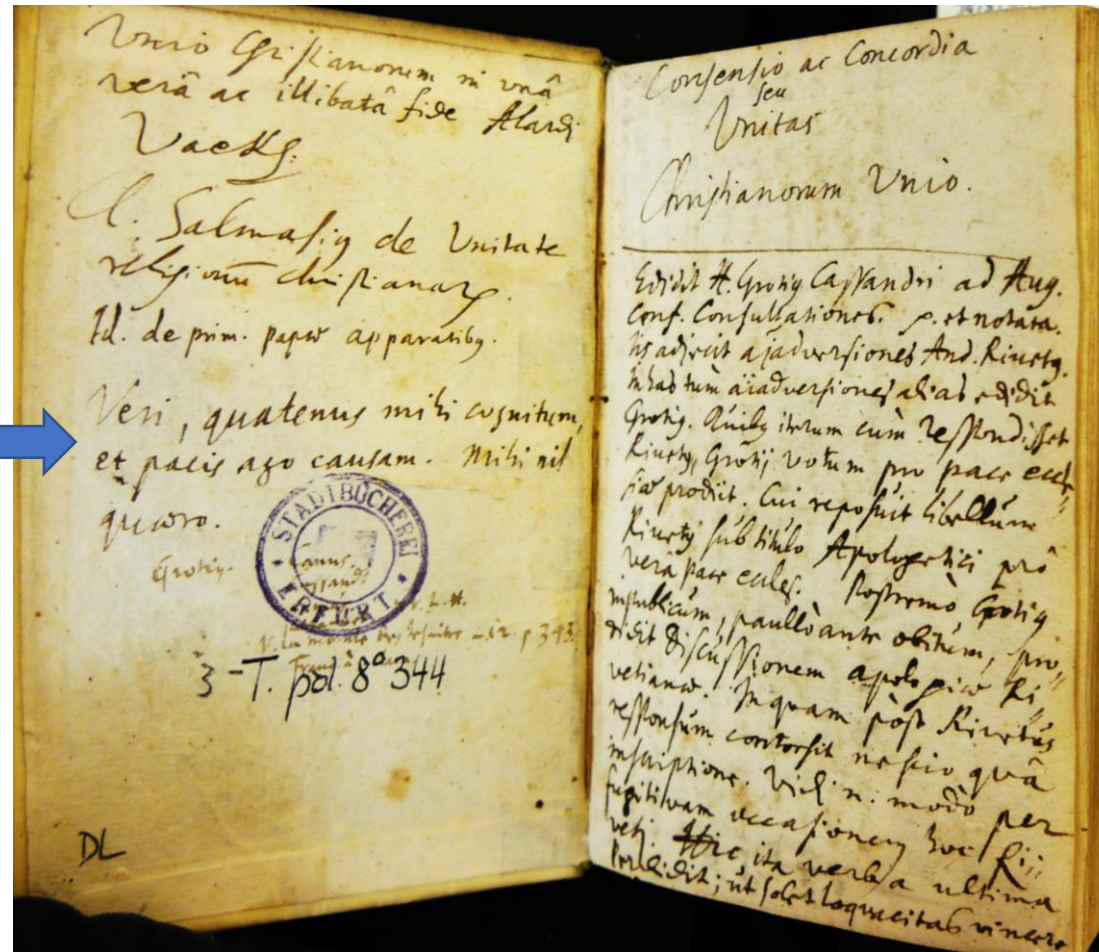 Unio Christianorum in unâ
verâ ac illibatâ fide Alardi
Vaek
Cl. Salmasig de Unitate
religionū christianarum.
Id. de prim. papæ apparatibg.
Veri, quatenus mihi cognitum,
et pacis ago causam. Mihi nil
quæro.
Grotig.
STADTBÜCHEREI
ERFURT
p. 343
3-T. pol. 8° 344
DL
Consensio ac Concordia
seu
Unitas
Christianorum Unio.
Edidit H. Grotig Cassandri ad Aug.
Conf. Consultationes. et notata.
his adjecit And. Rivetg.
In has tum alias edidit
Grotig. Quibg iterum cùm respondisset
Rivetg, Grotij votum pro pace eccle=
siæ prodiit. Cui reposuit libellum
Rivetg sub titulo Apologetici pro
verâ pace eccles. Postremò, Grotig
in publicum, paullò ante obitum, pro=
didit Discussionem apologiæ Ri=
vetianæ. In quam pòst Rivetus
responsum contorsit nescio quâ
inscriptione. Vidi n. modò per
fugitivam occasionem hoc Ri=
veti. Hic ita verba ultima
perdidit; ut solet loquacitas vincere